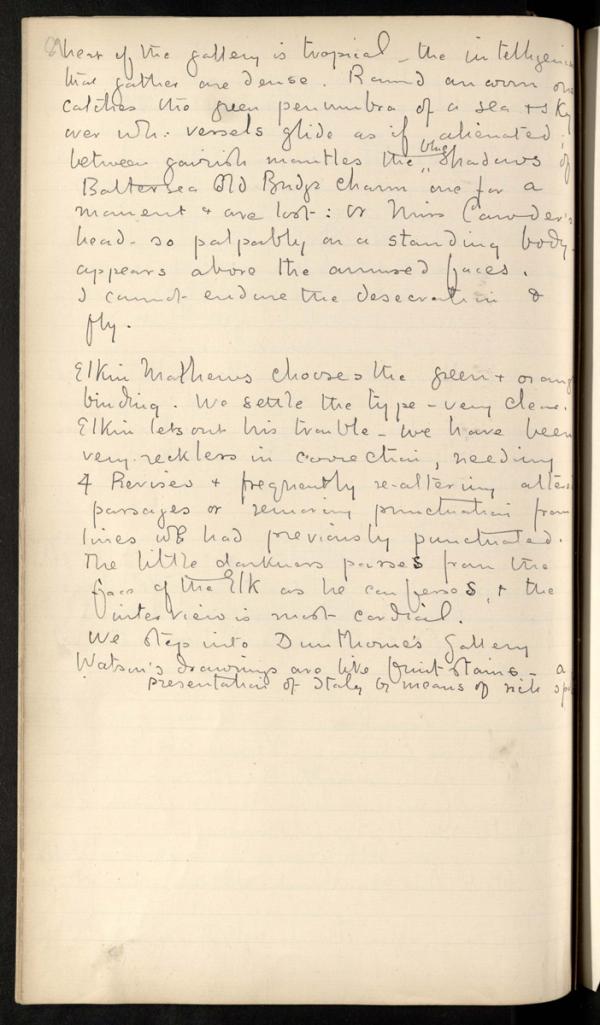 heat of the gallery is tropical - the intelligences
that gather are dense. Round an arm one
catches the green penumbra of a sea & sky
over wh: vessels glide as if alienated;
between gairish mantles the blue shadows of
Battersea Old Bridge charm one for a
moment & are lost: or Miss
head - so palpably on a standing body -
appears above the amused faces.
I cannot endure the desecration &
fly.
Elkin Mathews chooses the green & orange
binding. We settle the type - very clear.
Elkin lets out his trouble - we have been
very reckless in correction, needing
4 Revises & frequently re-altering altered
passages or removing punctuation from
lines we had previously punctuated.
The little darkness passes from the
face of the Elk as he confesses, & the
interview is most cordial.
We step into Dunthorne's Gallery
Watson's drawings are like fruit-stains - a
presentation of Italy by means of rich